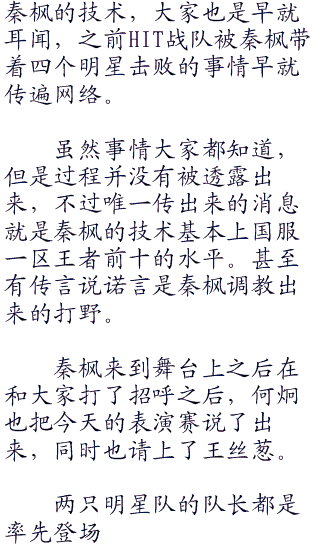 秦枫的技术，大家也是早就
耳闻，之前HIT战队被秦枫带
着四个明星击败的事情早就
传遍网络。
虽然事情大家都知道，
但是过程并没有被透露出
来，不过唯一传出来的消息
就是秦枫的技术基本上国服
一区王者前十的水平。甚至
有传言说诺言是秦枫调教出
来的打野。
秦枫来到舞台上之后在
和大家打了招呼之后，何炯
也把今天的表演赛说了出
来，同时也请上了王丝葱。
两只明星队的队长都是
率先登场